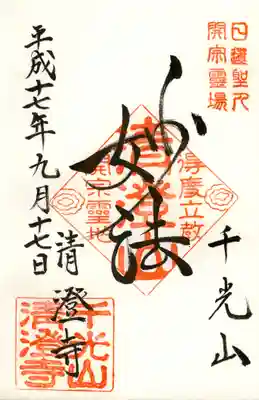 日蓮聖人
開宗霊場
千光山
妙法
清澄山
得度立教
開宗霊地
清澄寺
平成十七年九月十七日
千光山
清澄寺